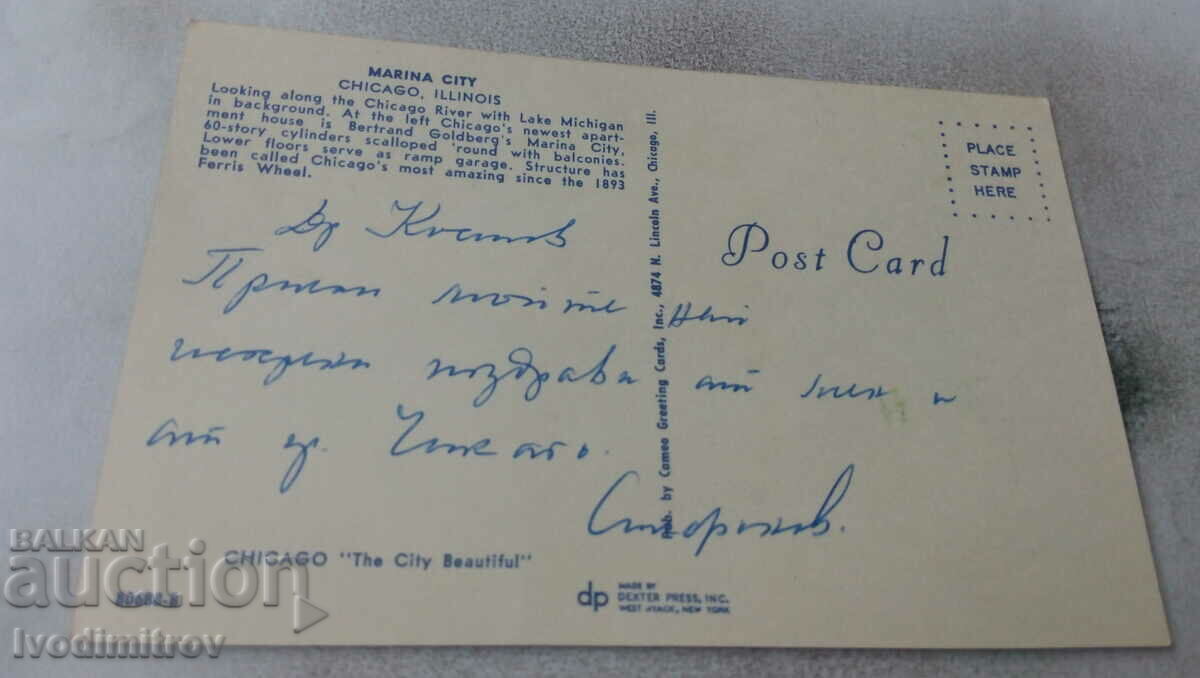 MARINA CITY
CHICAGO, ILLINOIS
Looking along the Chicago River with Lake Michigan
in background. At the left Chicago's newest apart-
ment house is Bertrand Goldberg's Marina City,
60-story cylinders scalloped 'round with balconies.
Lower floors serve as ramp garage. Structure has
been called Chicago's most amazing since the 1893
Ferris Wheel.
PLACE
STAMP
HERE
Post Card
Pub. by Cameo Greeting Cards, Inc., 4874 N. Lincoln Ave., Chicago, Ill.
Др Костов
Приеми моите най
искрени поздрави от мен и
от гр. Чикаго.
CHICAGO "The City Beautiful"
dp MADE BY
DEXTER PRESS, INC.
WEST NYACK, NEW YORK
BALKAN
auction
Ivodimitrov